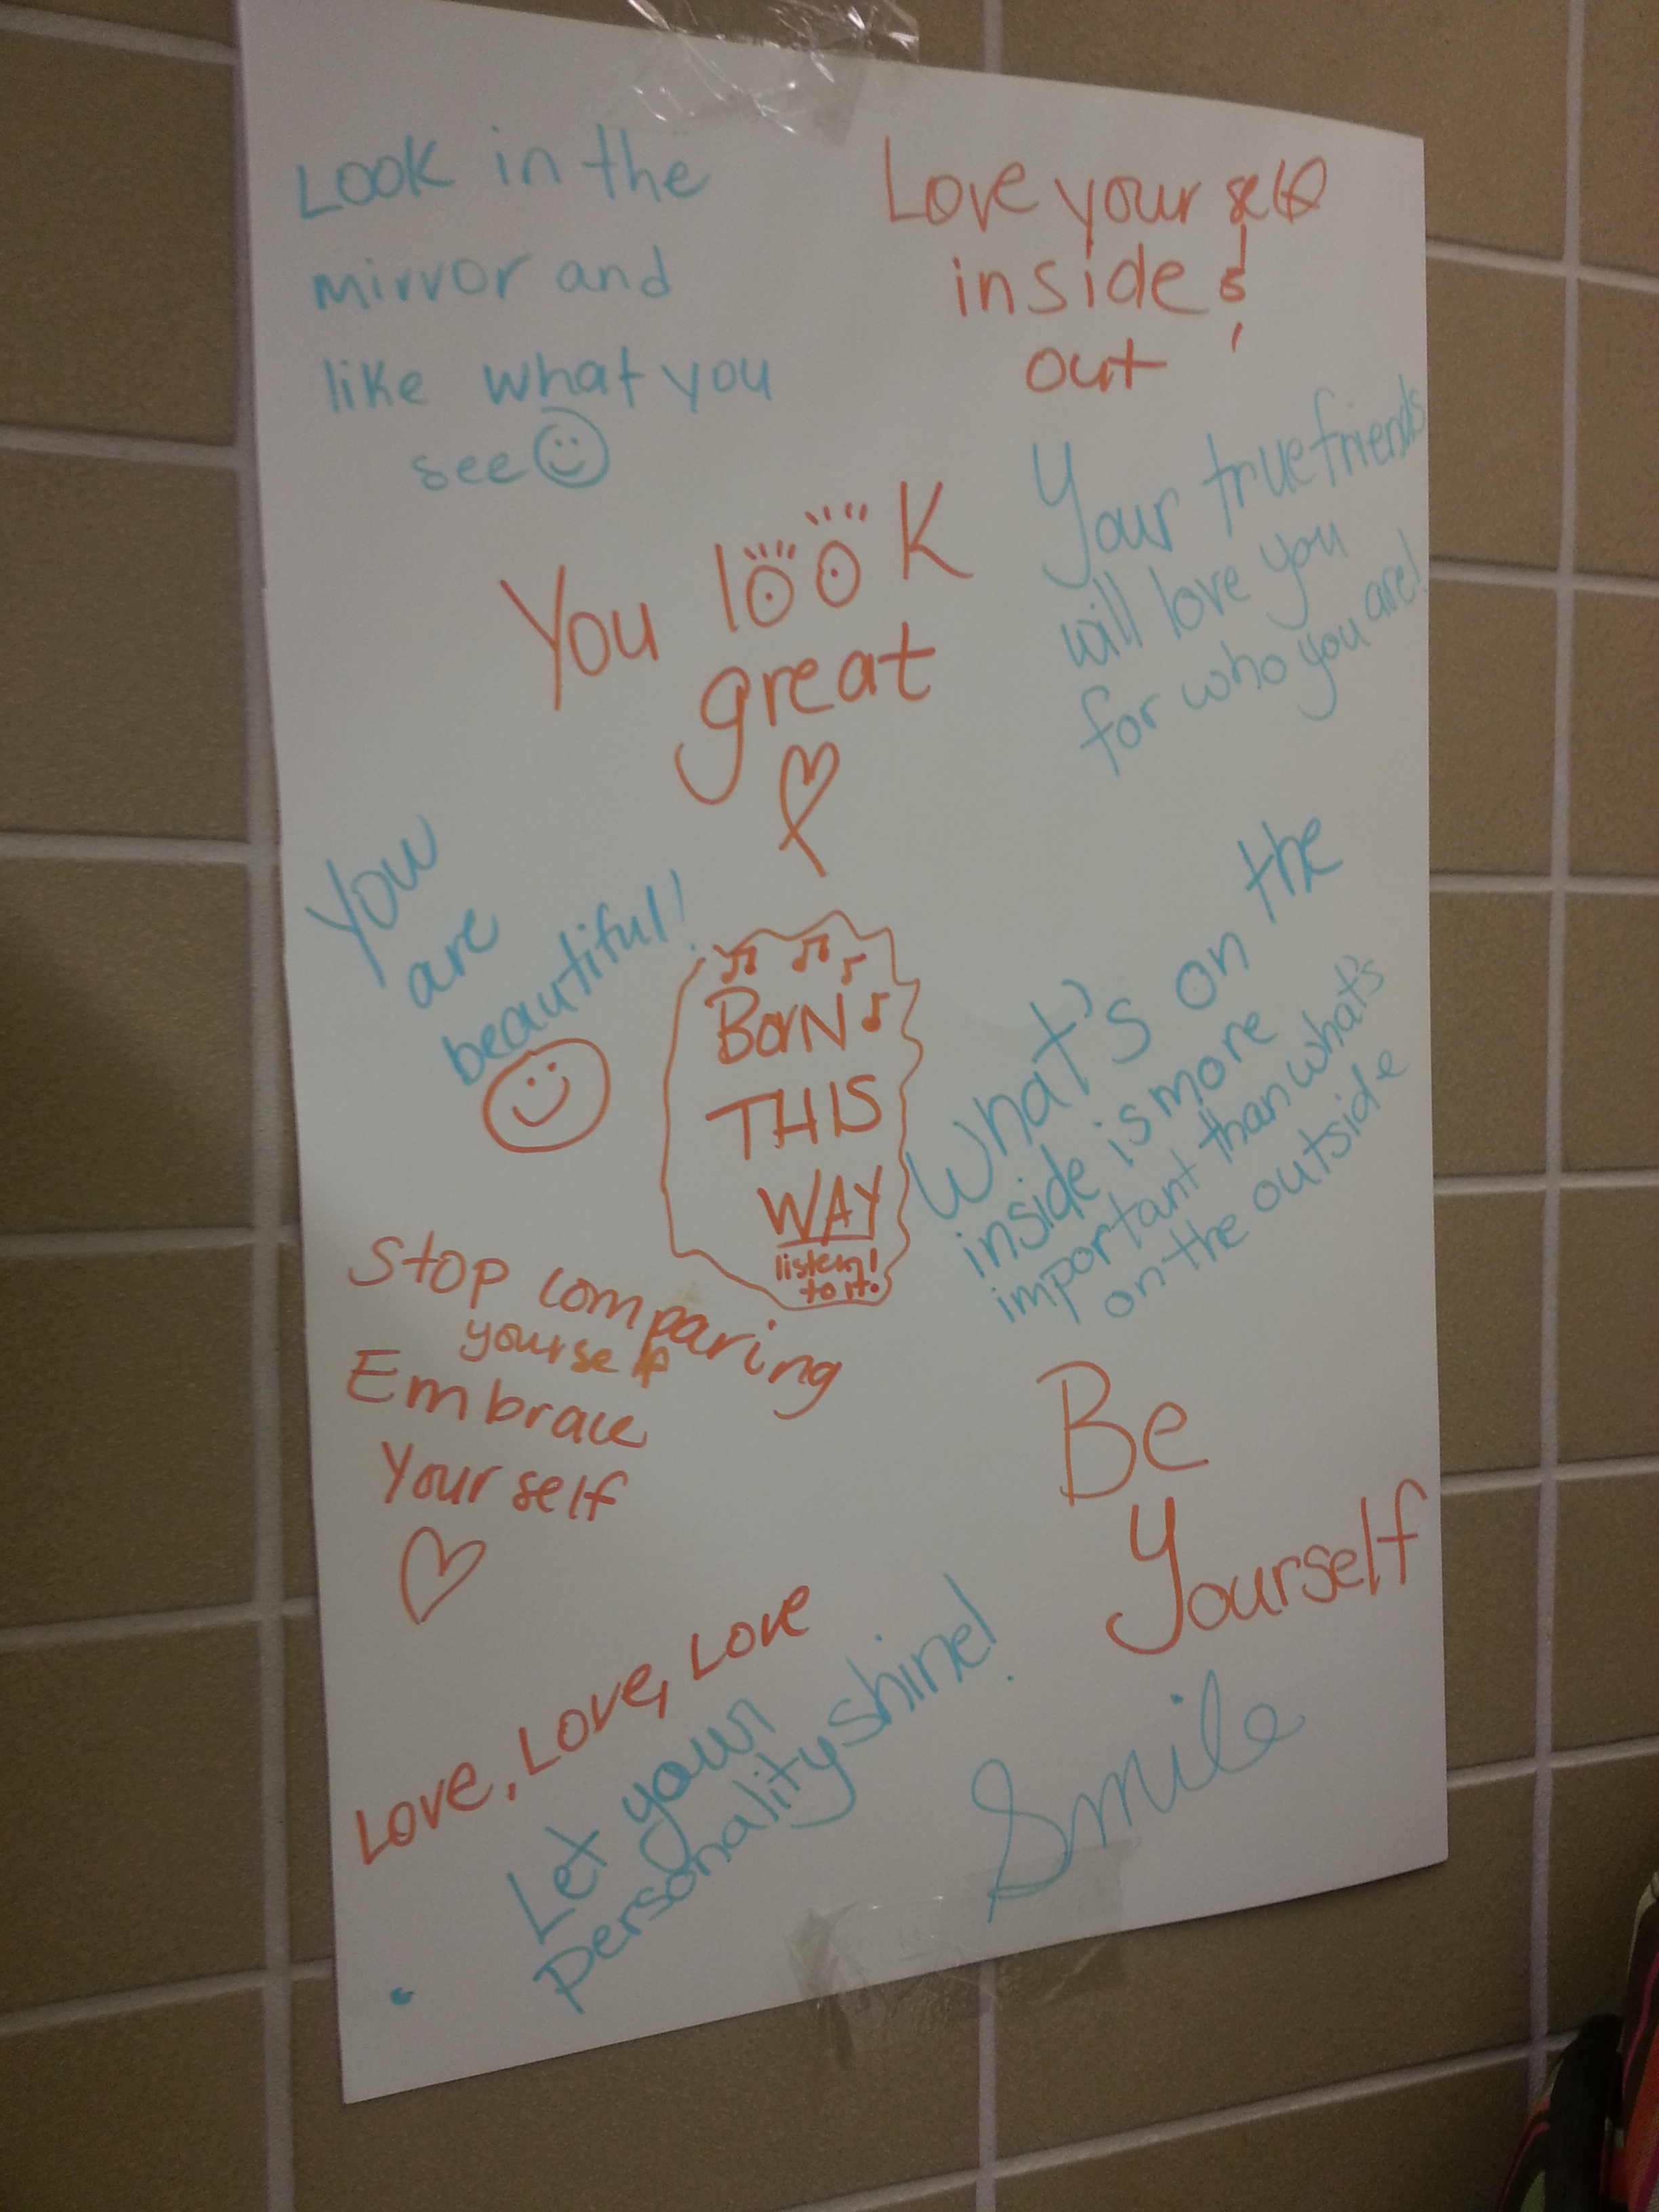 Look in the
mirror and
like what you
see
Love yourself
inside &
out
Your true friends
will love you
for who you are!
You look
great
You
are
beautiful!
BorN
THIS
WAY
listen!
to it.
What's on the
inside is more
important than what's
on the outside
Stop comparing
yourself
Embrace
Yourself
Be
Yourself
Love, Love, Love
Let your
personality shine!
Smile